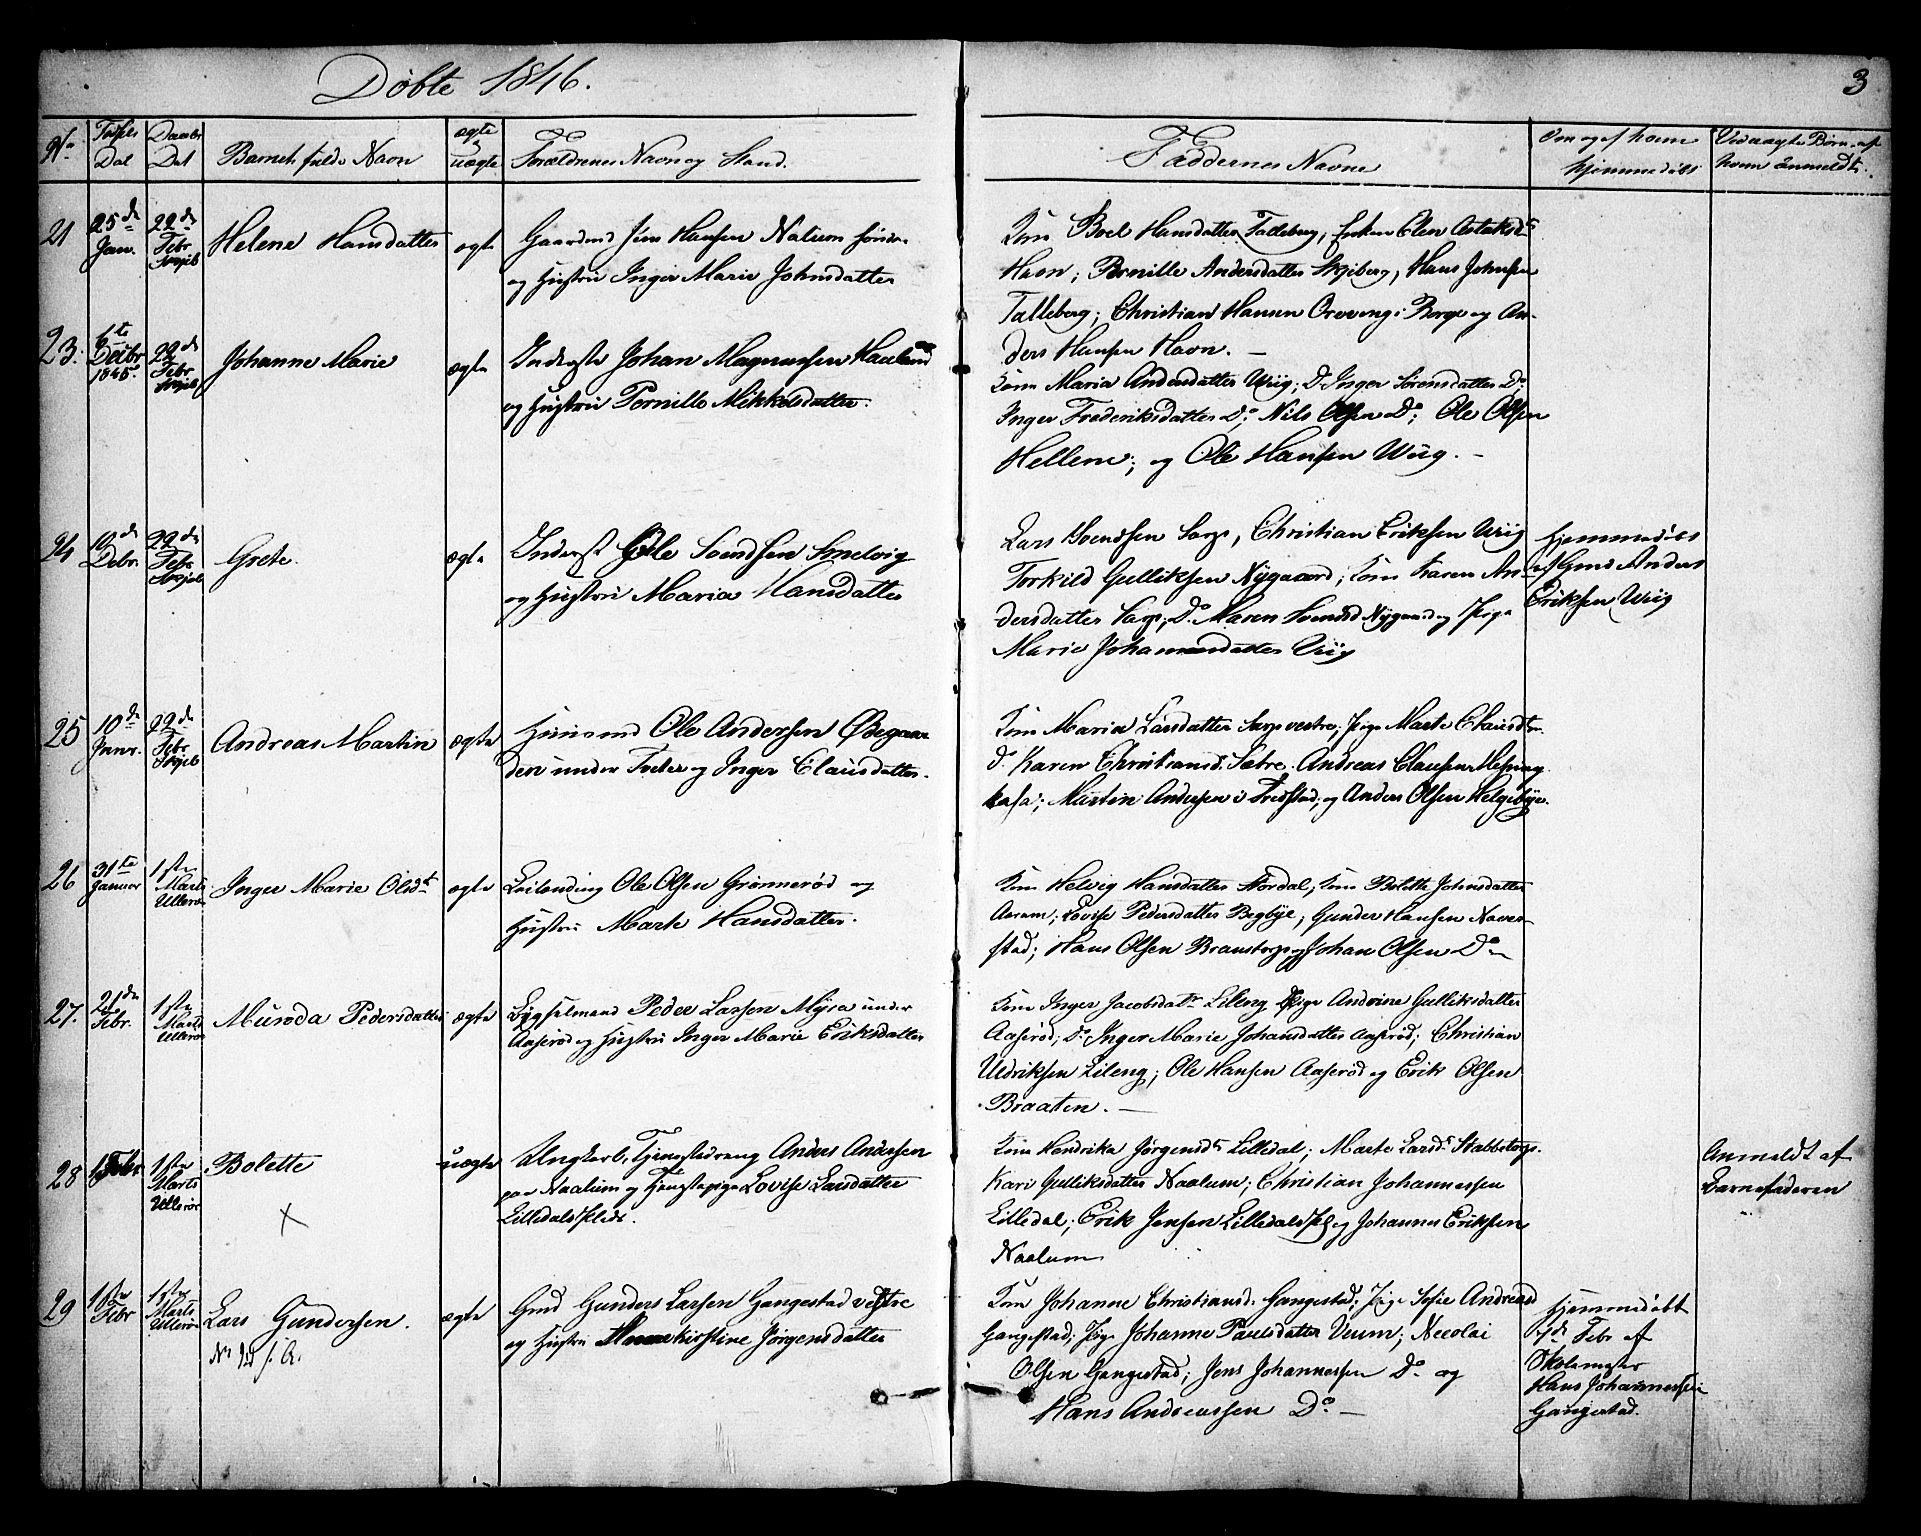 Døbte 1846.
3
No
Fødsels Dat
Daabs Dat
Barnets fulde Navn
ægte uægte
Forældrenes Navn og Stand.
Faddernes Navne
Om og af hvem hjemmedøbt
Uægte Børn af hvem anmeldt.
21
25de Jan.
22de Febr Skjeb
Helene Hansdatter
ægte
Gaardmd Jens Hansen Nalum søndre
og Hustru Inger Marie Johnsdatter
Kone Boel Hansdatter Talleberg, Enken Elen Astaksd.
Havn; Pernille Andersdatter Skjeberg, Hans Johnsen
Talleberg; Christian Hansen Orevengi Borge og An-
ders Hansen Havn. —
23.
6te Decbr 1845.
22de Febr Skjeb
Johanne Marie
ægte
Inderste Johan Magnussen Hauland
og Hustru Pernille Mikkelsdatter.
Kone Maria Andersdatter Wiig; Do Inger Sørensdatter Do
Inger Frederiksdatter Do; Nils Olsen Do; Ole Olsen
Hellem; og Ole Hansen Wiig. -
24
10de Debr.
22de Febr Skjeb
Grete.
ægte
Inderst Ole Svendsen Smelvig
og Hustru Maria Hansdatter
Lars Svendsen Sarp, Christian Eriksen Wiig
Torkild Gulliksen Nygaard, Kone Karen An-
dersdatter Sarp; Do Maren Svendsd Nygaard og Pige
Marie Johannesdatter Viig
Hjemmedøbt
af Gmd Anders
Eriksen Wiig
25
10de Janr.
22de Febr Skjeb
Andreas Martin
ægte
Huusmd Ole Andersen Ødegaar
den under Tveter og Inger Clausdatter.
Kone Maria Larsdatter Sarp vestre; Pige Marte Clausdtr
Do Karen Christiansd. Sætre. Andreas Clausen
kasa; Martin Andersen i Fredstad; og Anders Olsen Helgebye.
26
31te Januar
1ste Marts Ullerøe
Inger Marie Olsdt
ægte
Leilending Ole Olsen Grønnerød og
Hustru Marte Hansdatter.
Kone Helvig Hansdatter Nordal; Kone Bolette Johnsdatter
Aarum; Lovise Pedersdatter Begbye, Gunder Hansen Naver-
stad; Hans Olsen Branstorp og Johan Olsen Do
27.
21de Febr.
1ste Marts Ullerøe
Munda Pedersdatter
ægte
Bygselmand Peder Larsen Myra under
Aaserød og Hustru Inger Marie Eriksdatter
Kone Inger Jacobsdatr Lileng Pige Andrine Gulliksdatter
Aaserød; Do Inger Marie Johansdatter Aaserød; Christian
Uldriksen Lileng; Ole Hansen Aaserød og Erik Olsen
Braaten. —
28
1 Febr
1ste Marts Ullerøe
Bolette
X
uægte
Ungkarl, Tjenestedreng Anders Andersen
paa Naalum og Tjenestepige Lovise Larsdatter
Lilledal
Kone Hendrika Jørgensdtr Lilledal; Marte Larsd. Stabbetorp.
Kari Gulliksdatter Naalum; Christian Johannessen
Lilledal; Erik Jensen Lilledal og Johannes Eriksen
Naalum
Anmeldt af
Barnefaderen
29
1ste Febr
1ste Marts Ullerøe
Lars Gundersen.
ægte
Gmd Gunders Larsen Gangestad vestre
og Hustru Maren Kirstine Jørgensdatter
Kone Johanne Christiansd. Gangestad; Pige Sofie Andreasd
Gangestad; Pige Johanne Paulsdatter Veum; Nicolai
Olsen Gangestad; Jens Johannessen Do og
Hans Andreassen Do —
Hjemmedøbt
Febr af
Skolemester
Hans Johannessen
Gangestad.